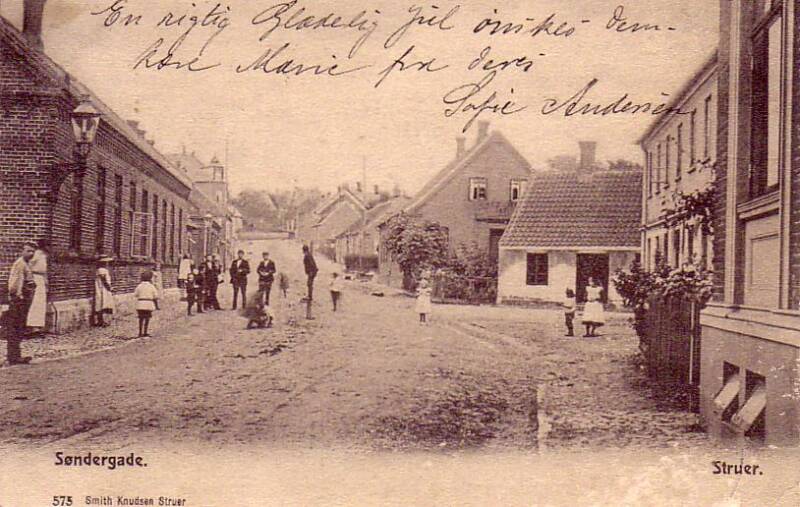 En rigtig Glædelig Jul ønskes Dem-
kære Marie fra deres
Sofie Andersen
Søndergade.
Struer.
575 Smith Knudsen Struer